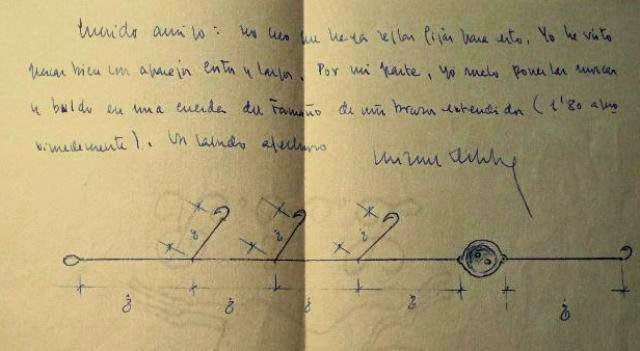 Querido amigo: no creo que haya reglas fijas para esto. Yo he visto
pescar bien con aparejos cortos y largos. Por mi parte, yo suelo poner las moscas
y buldo en una cuerda del tamaño de mis brazos extendidos (1'80 apro
ximadamente). Un saludo afectuoso
¿? ¿? ¿?
¿? ¿? ¿? ¿? ¿?